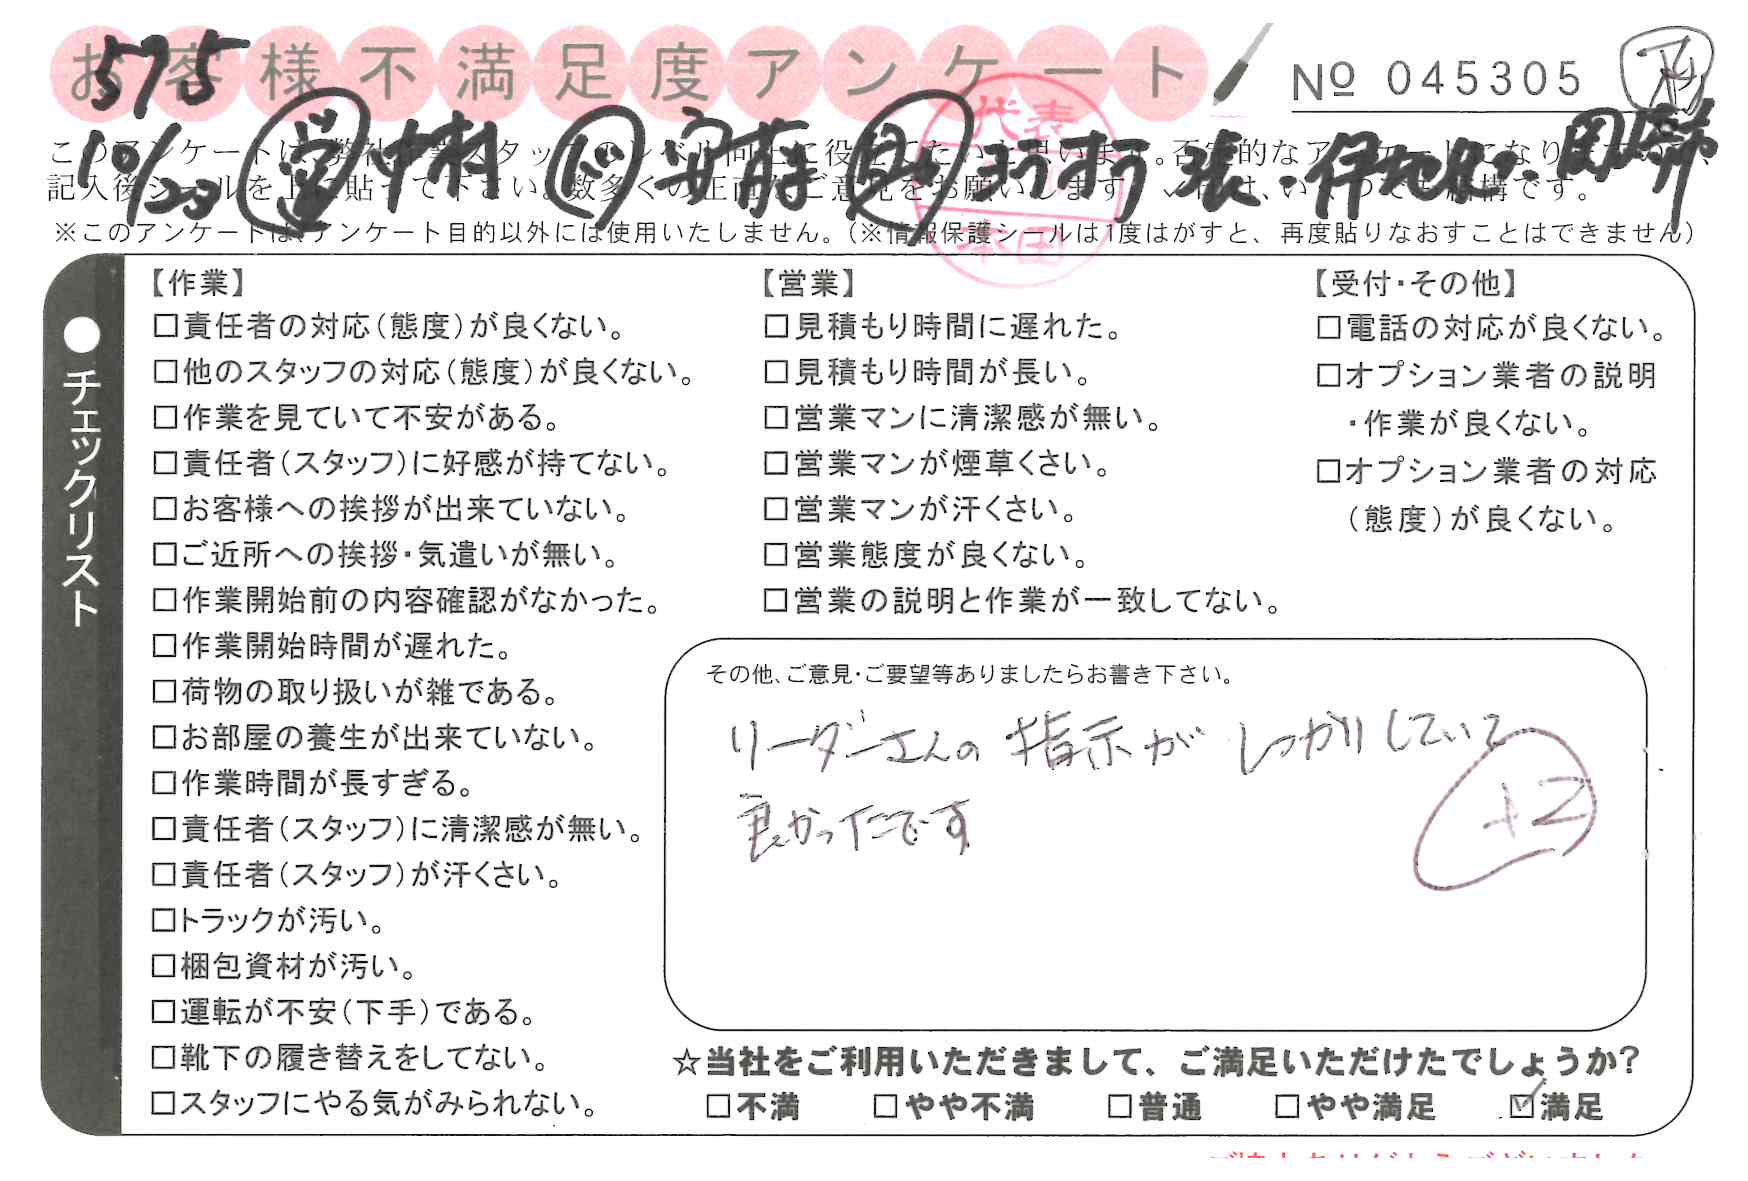 お客様不満足度アンケート
575
№ 045305
10/23
このアンケートは、弊社作業スタッフのレベル向上に役立てたいと思います。否定的なアンケートになりますが、
記入後シールを上に貼って下さい。数多くの正直なご意見をお願いします。
※このアンケートは、アンケート目的以外には使用いたしません。(※情報保護シールは1度はがすと、再度貼りなおすことはできません)
代表
本田
●チェックリスト
【作業】
□責任者の対応(態度)が良くない。
□他のスタッフの対応(態度)が良くない。
□作業を見ていて不安がある。
□責任者(スタッフ)に好感が持てない。
□お客様への挨拶が出来ていない。
□ご近所への挨拶・気遣いが無い。
□作業開始前の内容確認がなかった。
□作業開始時間が遅れた。
□荷物の取り扱いが雑である。
□お部屋の養生が出来ていない。
□作業時間が長すぎる。
□責任者(スタッフ)に清潔感が無い。
□責任者(スタッフ)が汗くさい。
□トラックが汚い。
□梱包資材が汚い。
□運転が不安(下手)である。
□靴下の履き替えをしてない。
□スタッフにやる気がみられない。
【営業】
□見積もり時間に遅れた。
□見積もり時間が長い。
□営業マンに清潔感が無い。
□営業マンが煙草くさい。
□営業マンが汗くさい。
□営業態度が良くない。
□営業の説明と作業が一致してない。
【受付・その他】
□電話の対応が良くない。
□オプション業者の説明
・作業が良くない。
□オプション業者の対応
(態度)が良くない。
その他、ご意見・ご要望等ありましたらお書き下さい。
リーダーさんの 指示が しっかりしていて
良かったです
+2
☆当社をご利用いただきまして、ご満足いただけたでしょうか?
□不満 □やや不満 □普通 □やや満足 ☑満足